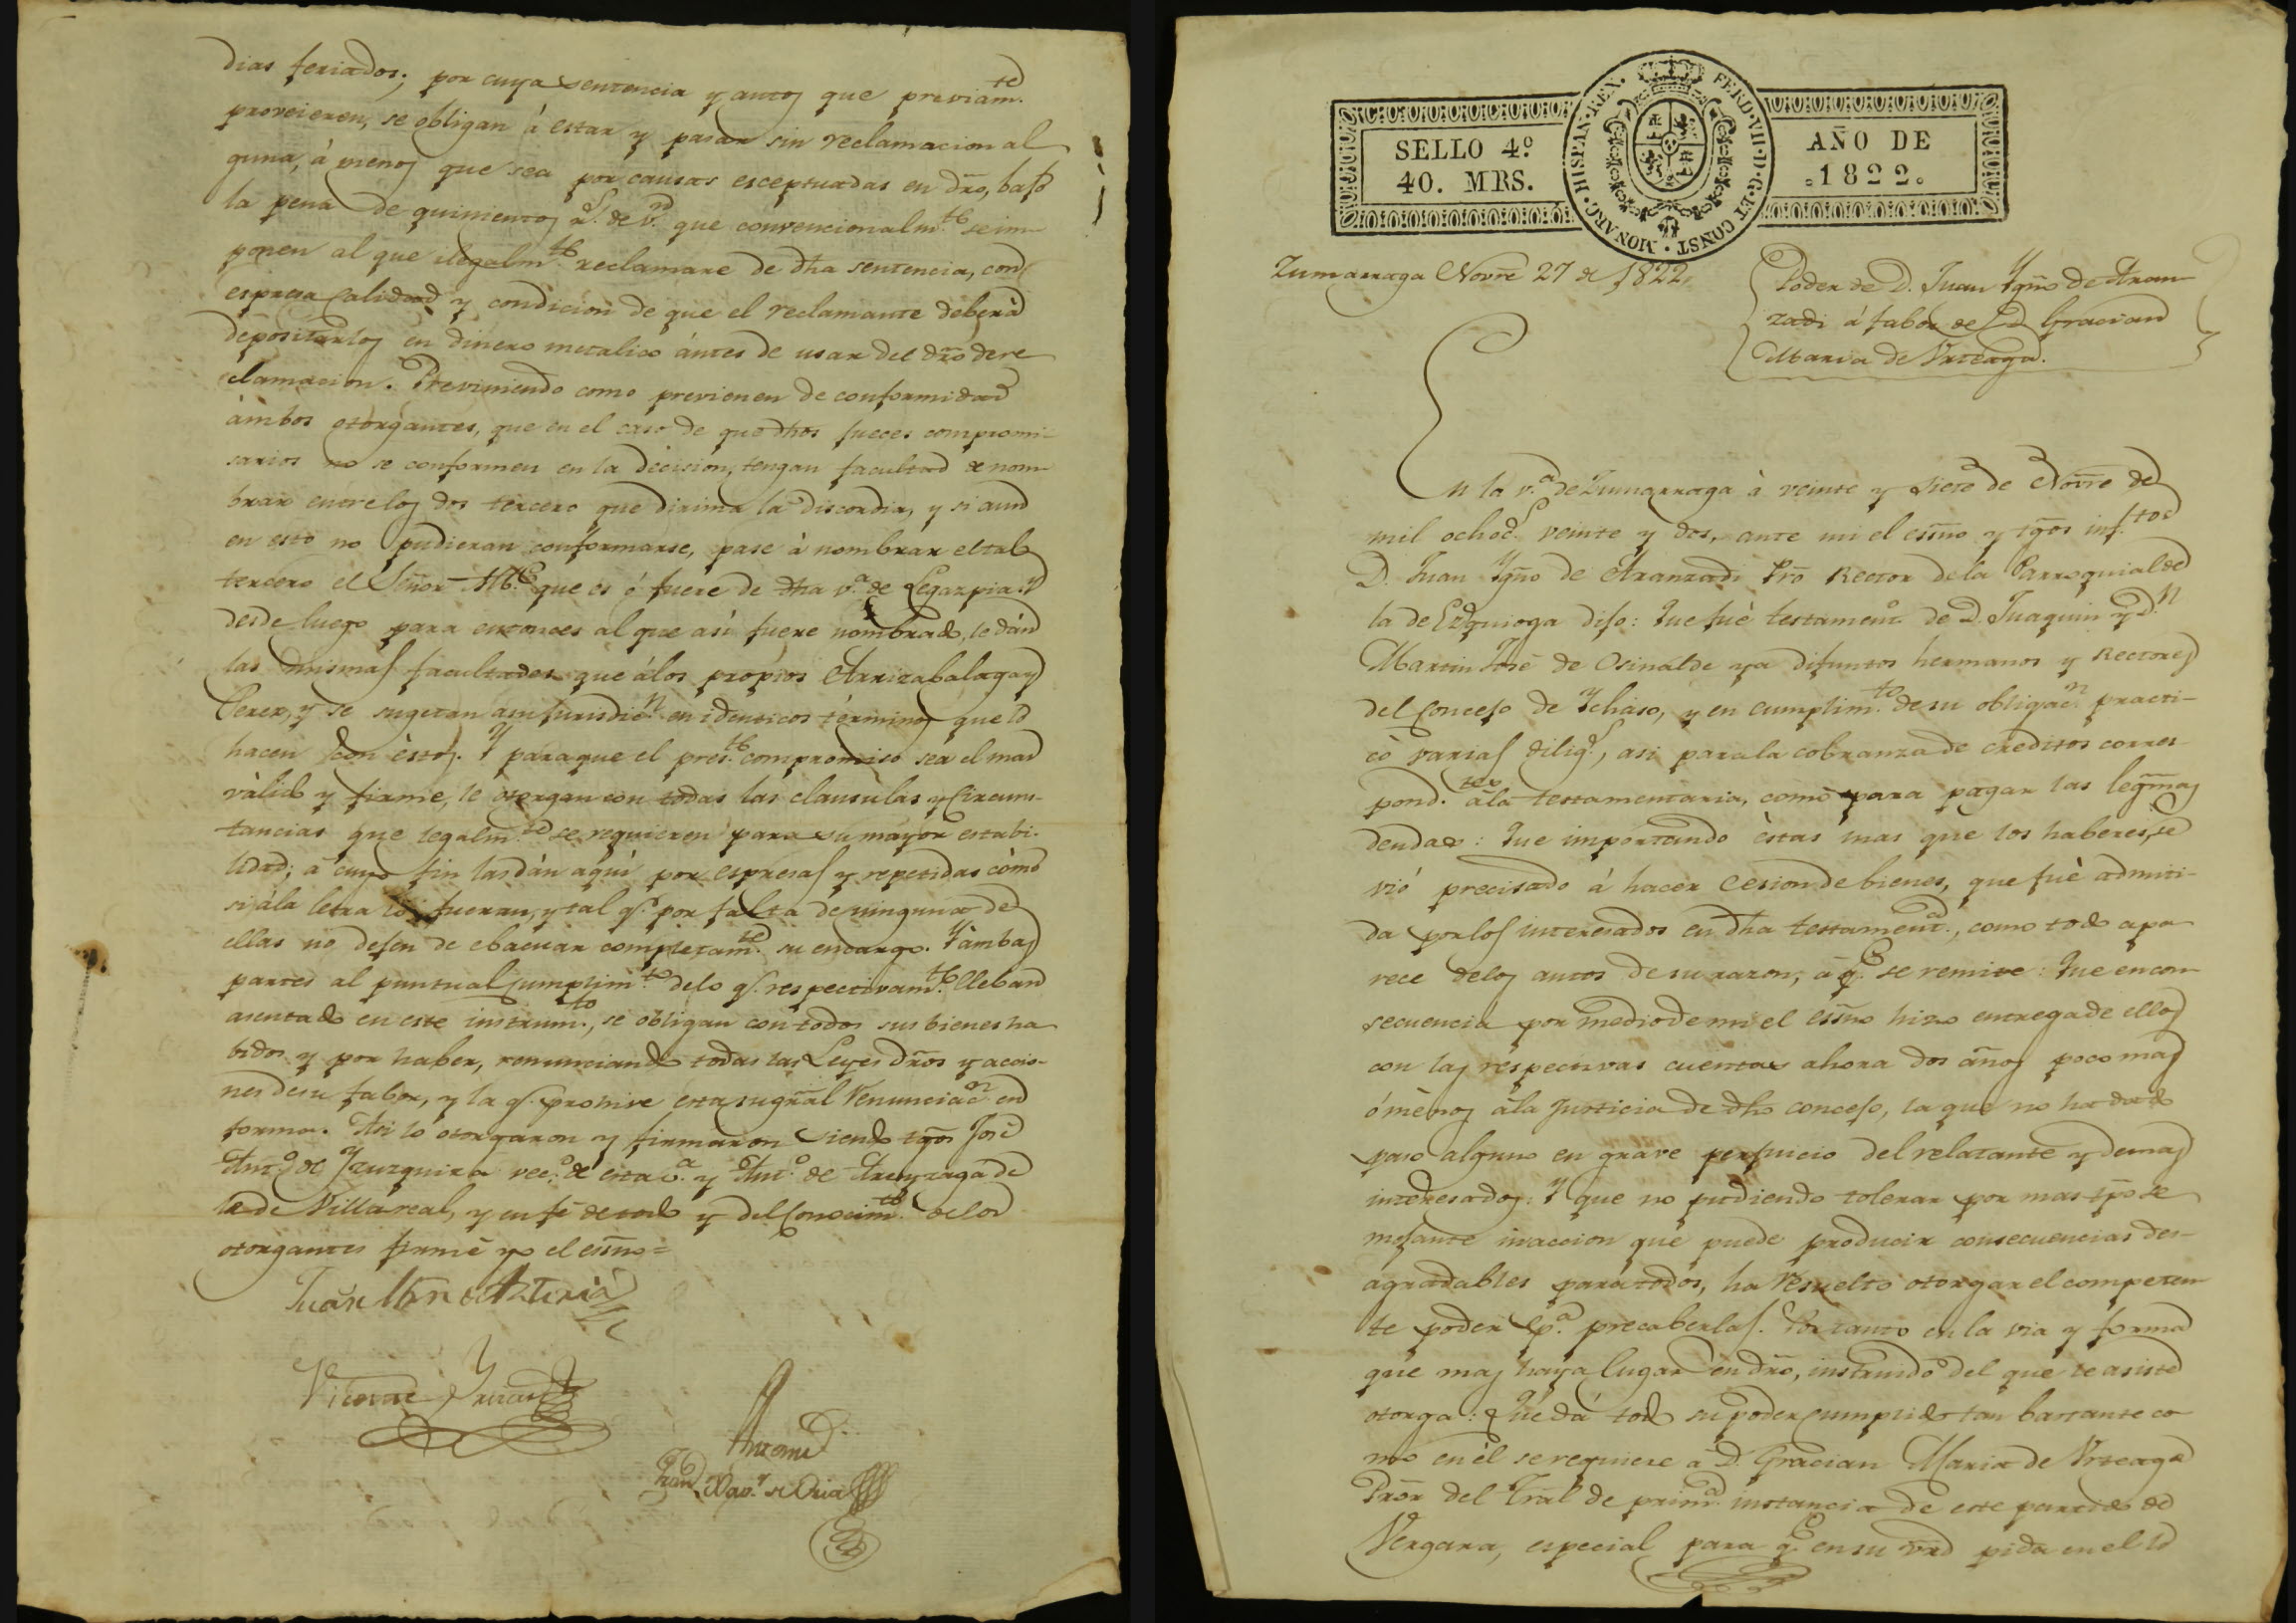 dias feriados; por cuya sentencia y autos que previam.te
proveieren, se obligan á estar y pasar sin reclamacion al
guna, à menos que sea por causas esceptuadas en dro, bajo
la pena de quinientos r.s de v.n que convencionalm.te se im
ponen al que ilegalm.te reclamare de dha sentencia, con
espresa calidad y condicion de que el reclamante deberà
depositarlos en dinero metalico ántes de usar del dro de re
clamacion. Previniendo como previenen de conformidad
ámbos otorgantes, que en el caso de que dhos jueces compromi-
sarios no se conformen en la decision, tengan facultad de nom
brar entre los dos tercero que dirima la discordia, y si aun
en esto no pudieran conformarse, pase à nombrar el tal
tercero el Señor Al.e que es ó fuere de dha v.a de Legazpia: Y
desde luego para entonces al que asi fuere nombrado, le dán
las mismas facultades que álos propios Arrizabalaga y
Perez, y se sugetan a su Jurisdic.n en identicos términos que lo
hacen con èstos. Y para que el pres.te compromiso sea el mas
válido y firme, le otorgan con todas las clausulas y Circuns-
tancias que legalm.te se requieren para su mayor estabi-
lidad; á cuyo fin las dán aquí por espresas y repetidas cómo
si ála letra lo fueran, y tal q.e por falta de ninguna de
ellas no dejen de ebacuar completam.te su encargo. Y ámbas
partes al puntual cumplim.to delo q.e respectivam.te lleban
asentado en este instrum.to, se obligan con todos sus bienes ha
bidos y por haber, renunciando todas las Leyes dros y accio-
nes de su fabor, y la q.e prohive esta su gral renunciac.n en
forma. Asi lo otorgaron y firmaron siendo tgos José
Ant.o de Yzuzquiza vec.o de esta v.a y Ant.o de Areyzaga de
la de Villareal, y en fé de todo y del conocim.to de los
otorgantes firmé yo el esno=
Juan Mrn de Asturia
Vicente Yrizar
Antemi
Fran.co Xav.r de Oria
SELLO 4.º
40. MRS.
HISPAN. REX. FERD. VII. D. G. ET CONST. MONARC.
AÑO DE
1822.
Zumarraga Novre 27 de 1822.
Poder de D. Juan Ygno de Aran
zadi á fabor de D. Gracian
Maria de Urteaga.
En la v.a de Zumarraga à veinte y siete de Novre de
mil ochoc.s veinte y dos, ante mi el esno y tgos inf.tos
D. Juan Ygno de Aranzadi Pro Rector de la Parroquial de
la de Ezquioga dijo: Que fuè testament.o de D. Juaquin y D.n
Martin José de Osinalde ya difuntos hermanos y Rectores
del Concejo de Ychaso, y en cumplim.to de su obligac.n practi-
có varias dilig.s, asi para la cobranza de creditos corres-
pond.tes ála testamentaria, como para pagar las legmas
deudas: Que importando èstas mas que los haberes, se
vió precisado á hacer cesion de bienes, que fuè admiti-
da por los interesados en dha testament.a, como todo apa
rece de los autos de su razon, á q.e se remite: Que en con
secuencia por medio de mi el esno hizo entrega de ellos
con las respectivas cuentas ahora dos años poco mas
ó mènos ála Justicia de dho concejo, la que no ha dado
paso alguno en grave perjuicio del relatante y demas
interesados: Y que no pudiendo tolerar por mas tpo se
mejante inaccion que puede producir consecuencias des-
agradables para todos, ha resuelto otorgar el competen
te poder p.a precaberlas. Por tanto en la via y forma
que mas haya lugar en dro, instruido del que le asiste
otorga: Que dá todo su poder cumplido tan bastante co
mo en él se requiere à D. Gracian Maria de Urteaga
Pror del Tral de prim.a instancia de este partido de
Vergara, especial para q.e en su vrd pida en el to